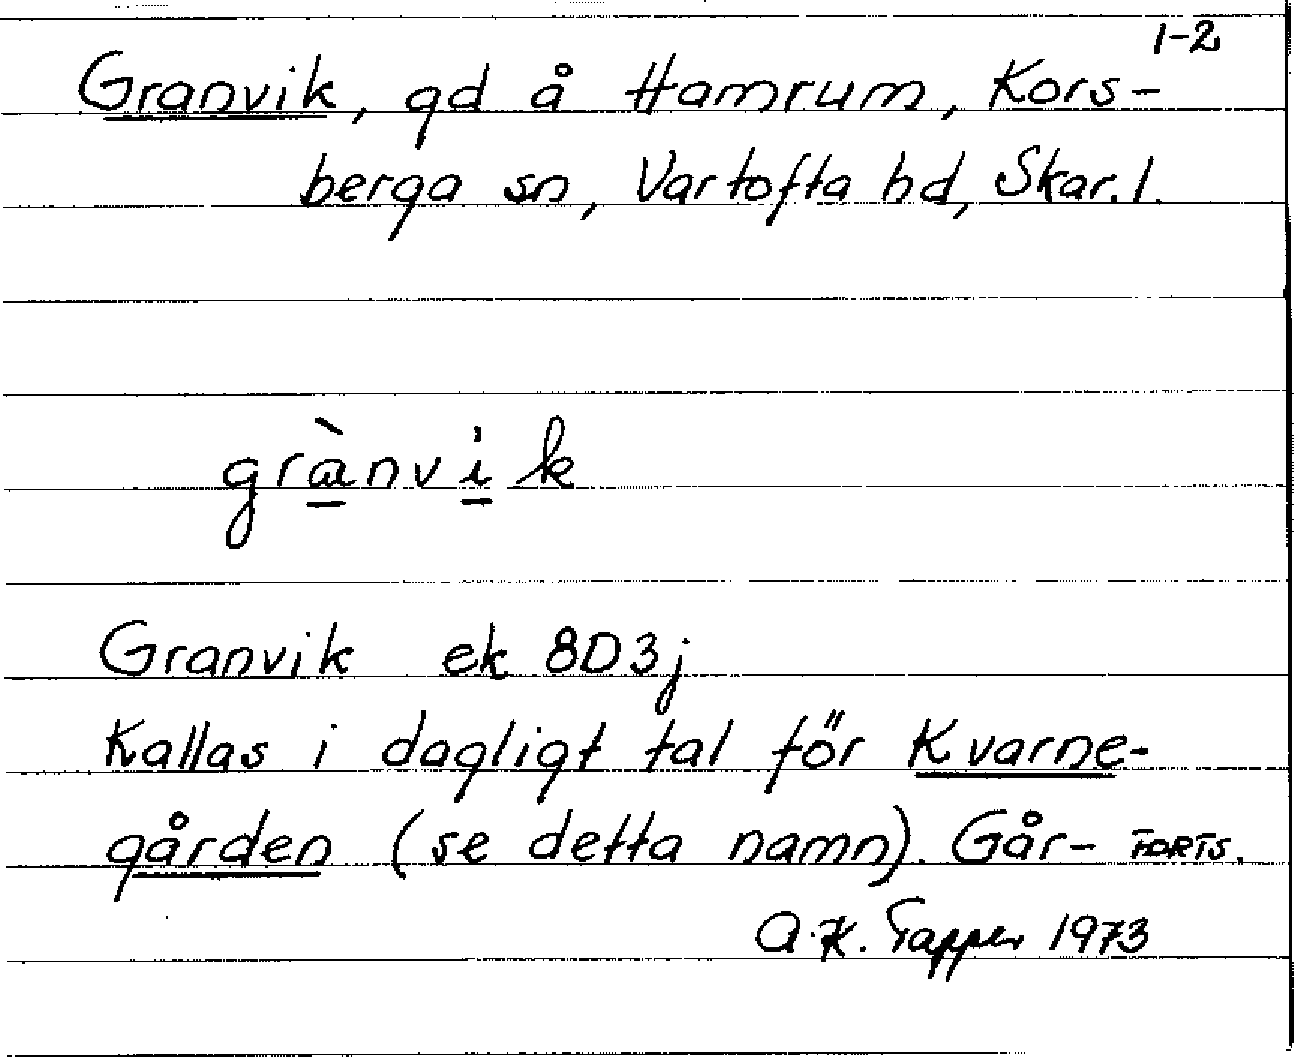 1-2
Granvik, gd å Hamrum, Kors-
berga sn, Vartofta hd, Skar. l.
grànvik
Granvik ek 8D3j
Kallas i dagligt tal för Kvarne-
gården (se detta namn). Går- FORTS.
A.K. Tapper 1973